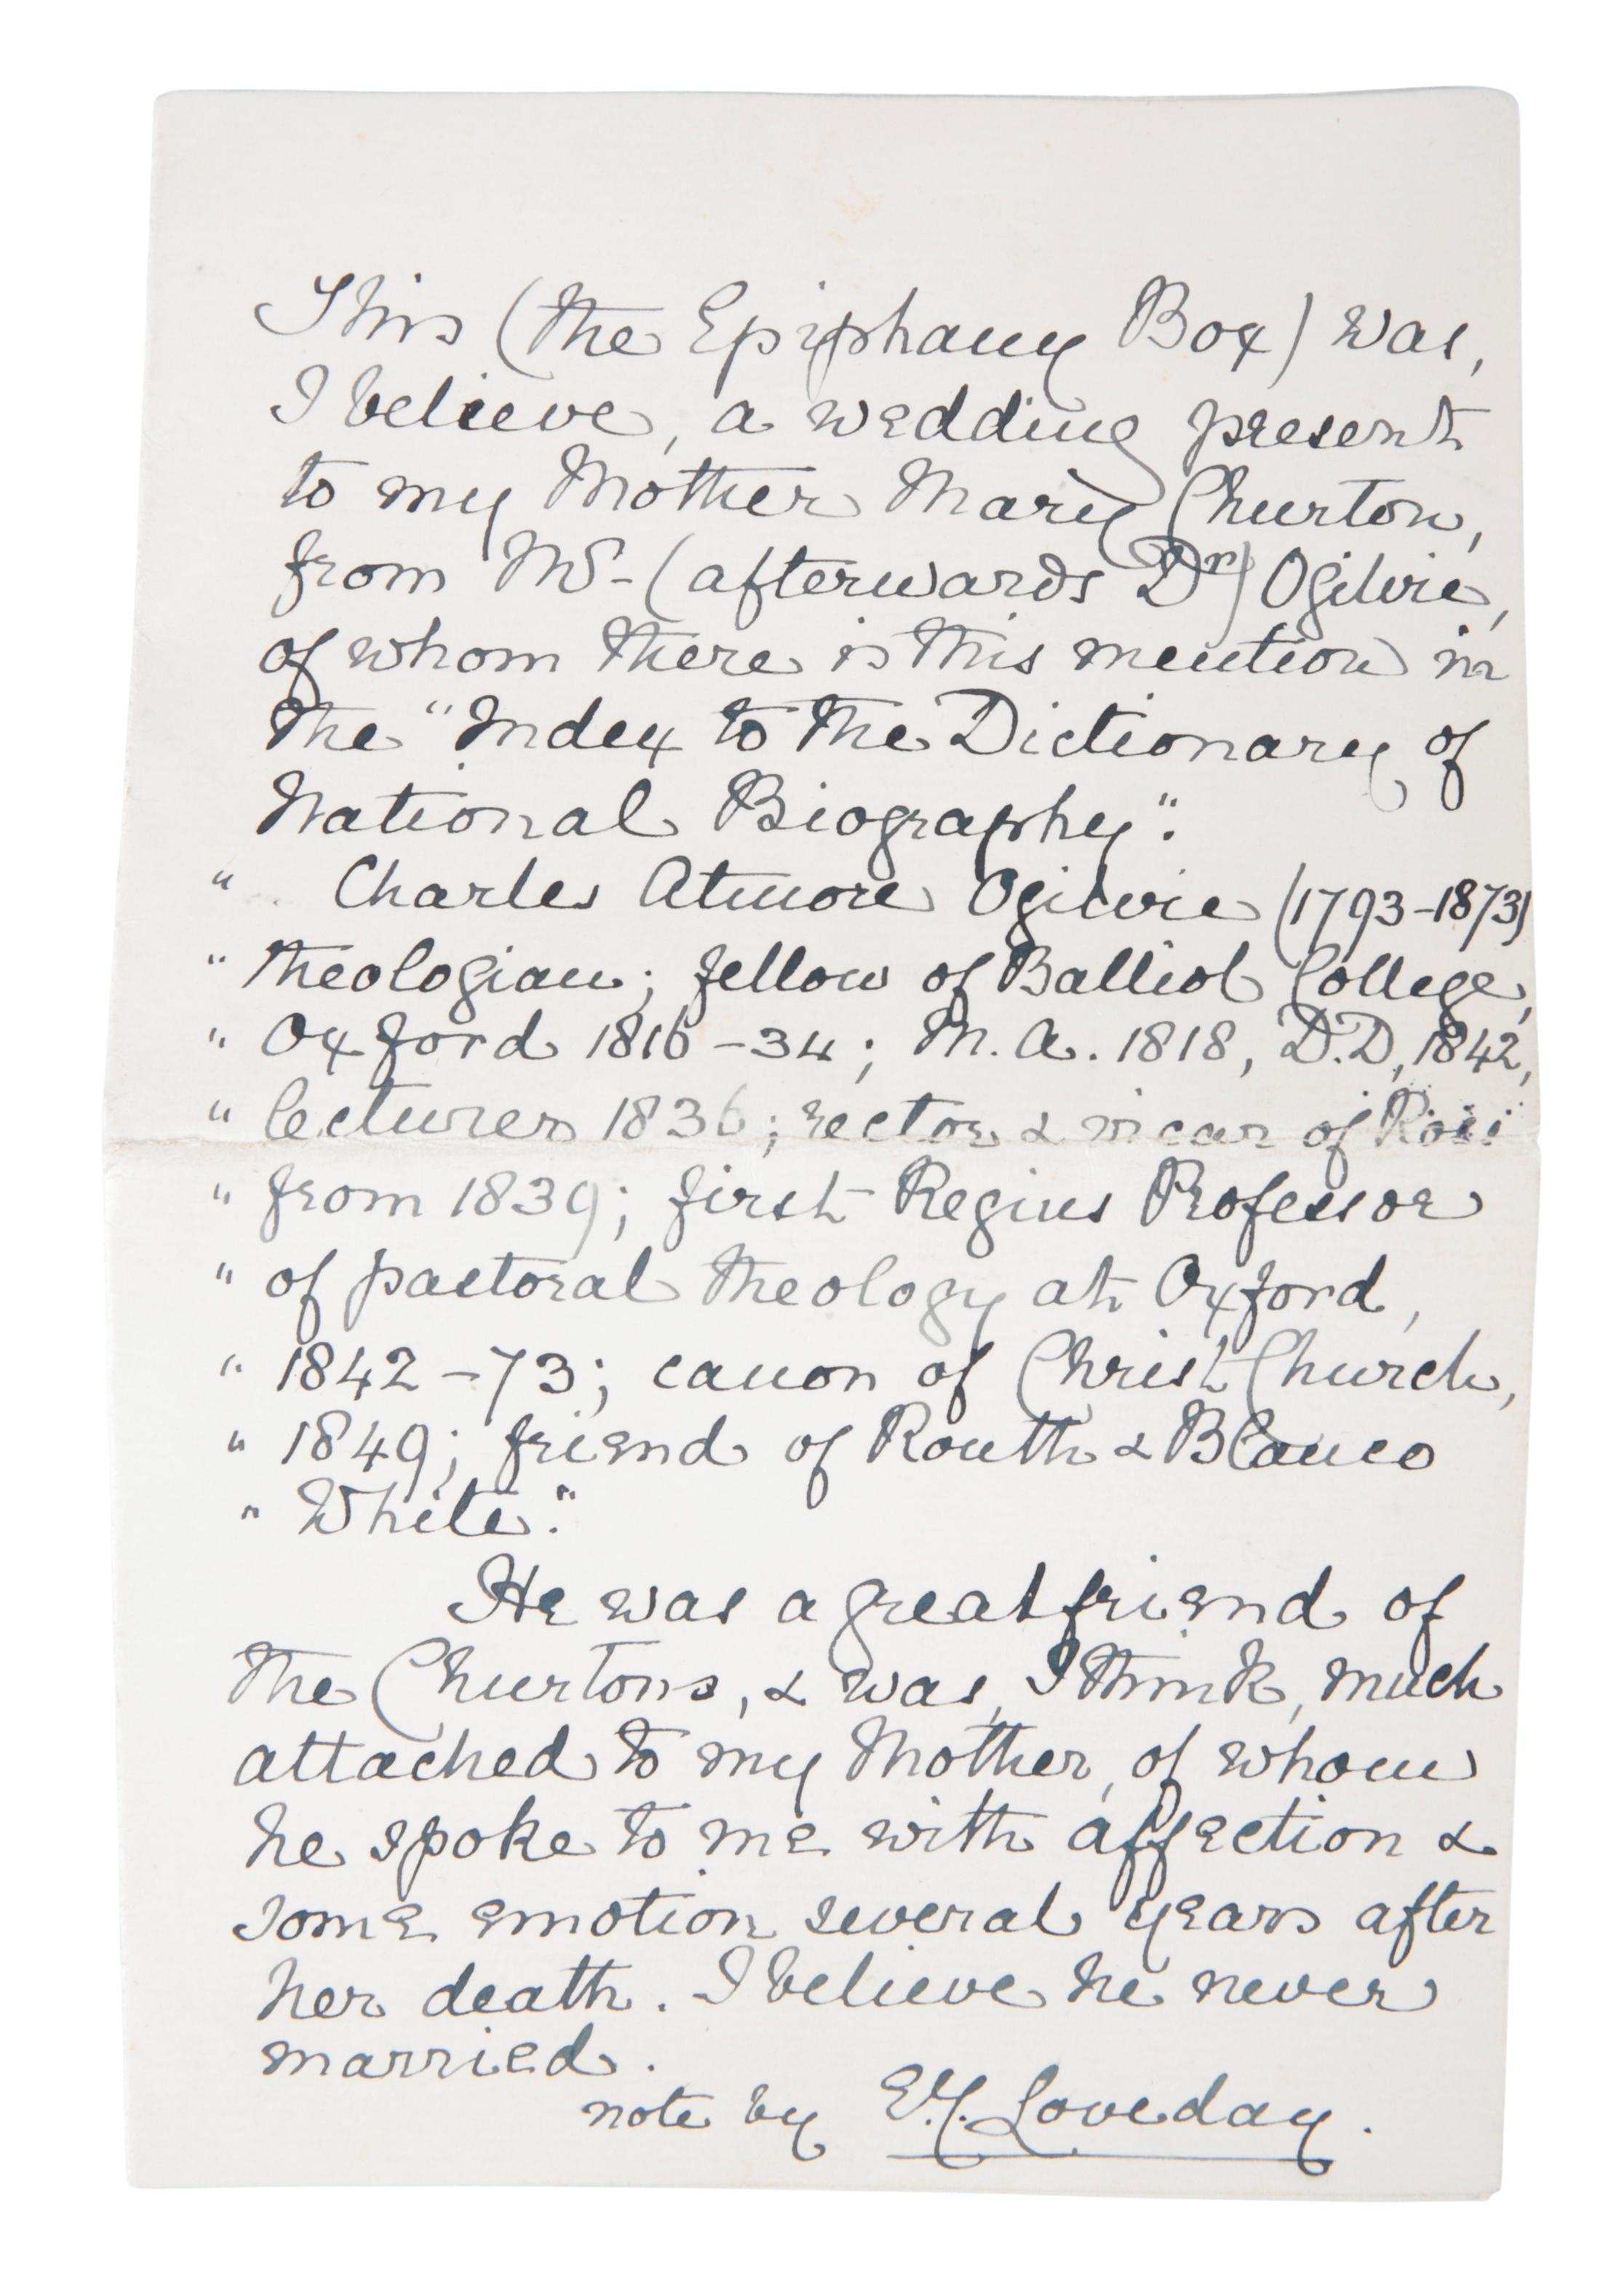 This (the Epiphany Box) was,
I believe, a wedding present
to my Mother Mary Churton,
from Mr- (afterwards Dr) Ogilvie,
of whom there is this mention in
the "Index to the Dictionary of
National Biography".
" Charles Atmore Ogilvie (1793-1873)
" theologian; fellow of Balliol College,
" Oxford 1816-34; M.A. 1818, D.D, 1842,
" lecturer 1836; rector & vicar of Ross
" from 1839; first Regius Professor
" of pastoral theology at Oxford,
" 1842-73; canon of Christ Church,
" 1849; friend of Routh & Blanco
" White."
He was a great friend of
the Churtons, & was, I think, much
attached to my Mother, of whom
he spoke to me with affection &
some emotion several years after
her death. I believe he never
married.
note by E.Y. Loveday.